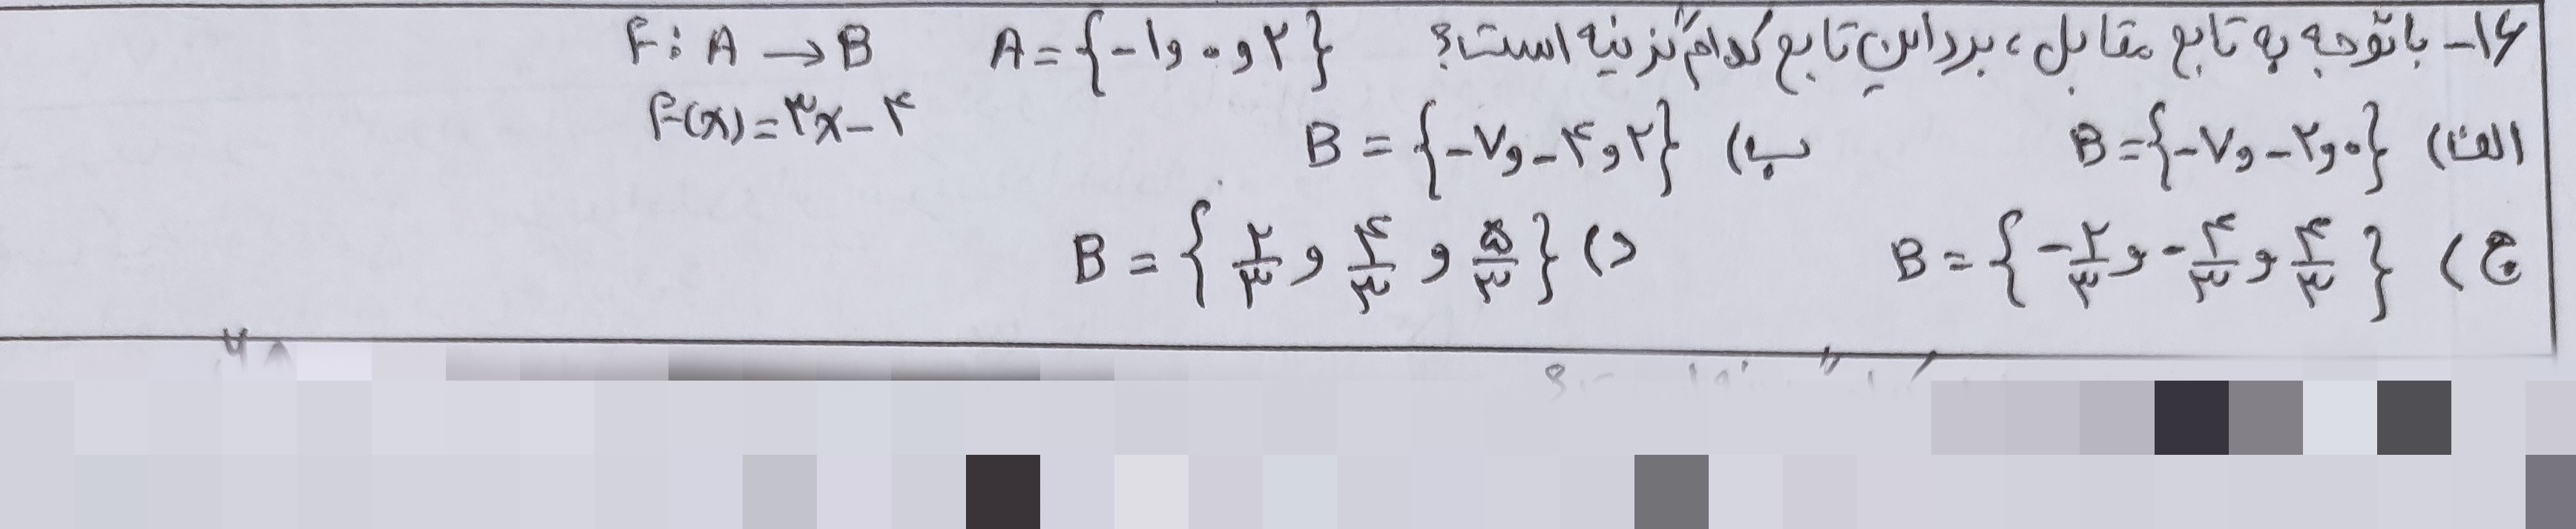 ۱۶- با توجه به تابع مقابل، برد این تابع کدام گزینه است؟ A = {-۱ و ۰ و ۲} F: A → B
F(x) = ۳x - ۴
الف) B = {-۷ و -۲ و ۰} ب) B = {-۷ و -۴ و ۲}
ج) B = {-۲/۳ و -۴/۳ و ۴/۳} د) B = {۲/۳ و ۴/۳ و ۵/۳}